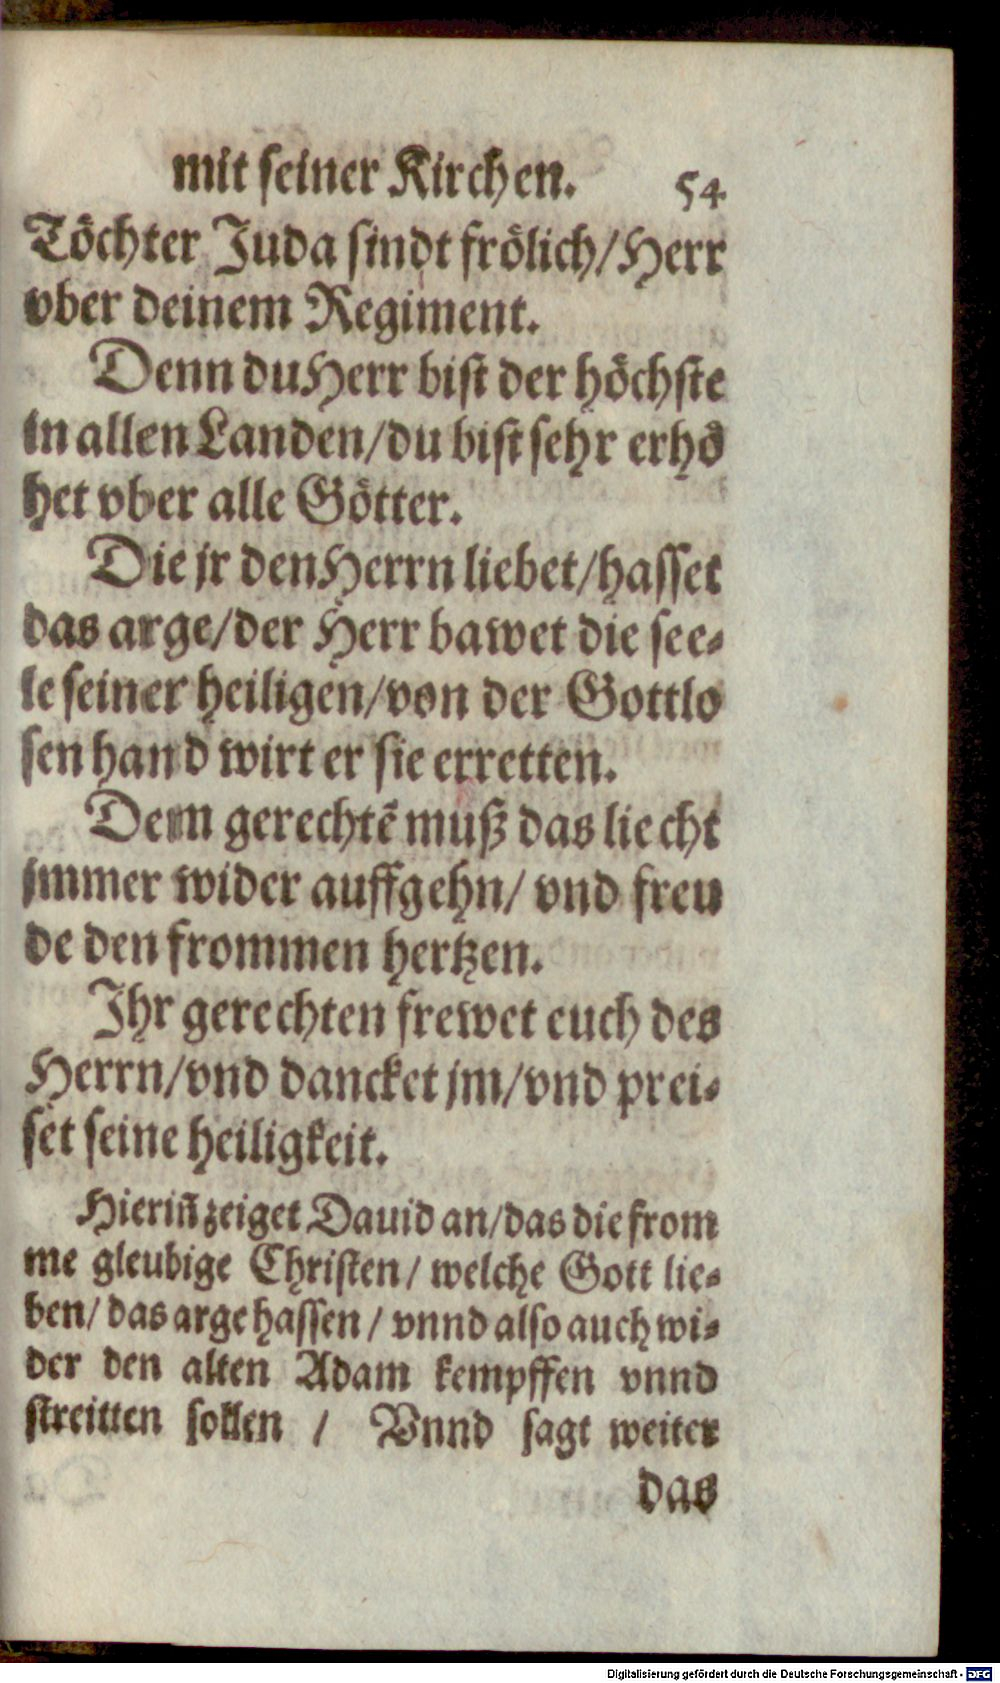 mit seiner Kirchen. 54.
Töchter Juda sindt frölich/Herr
vber deinem Regiment.
Denn du Herr bist der höchste
in allen Landen/du bist sehr erhö
het vber alle Götter.
Die jr den Herrn liebet/hasset
das arge/der Herr bawet die see-
le seiner heiligen/von der Gottlo
sen hand wirt er sie erretten.
Dem gerechtē muß das liecht
jmmer wider auffgehn/ vnd freu
de den frommen hertzen.
Ihr gerechten frewet euch des
Herrn/vnd dancket jm/vnd prei-
set seine heiligkeit.
Hieriñ zeiget Dauid an/das die from
me gleubige Christen/ welche Gott lie-
ben/ das arge hassen / vnnd also auch wi-
der den alten Adam kempffen vnnd
streitten sollen / Vnnd sagt weiter
das
Digitalisierung gefördert durch die Deutsche Forschungsgemeinschaft - DFG